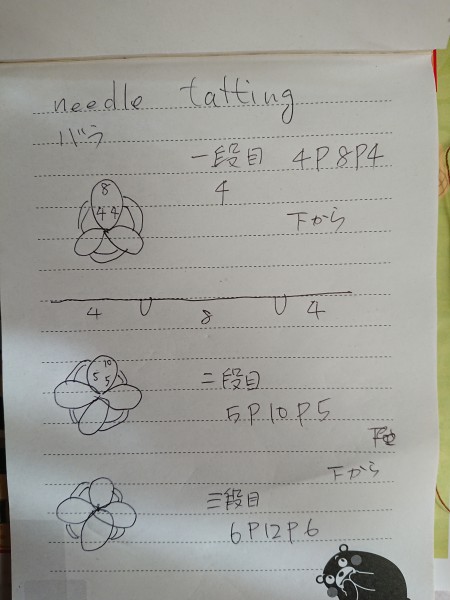 needle tatting
バラ
一段目 4P8P4
4
8
4 4
下から
4 8 4
二段目
10
5 5
5P10P5
下から
三段目
6P12P6